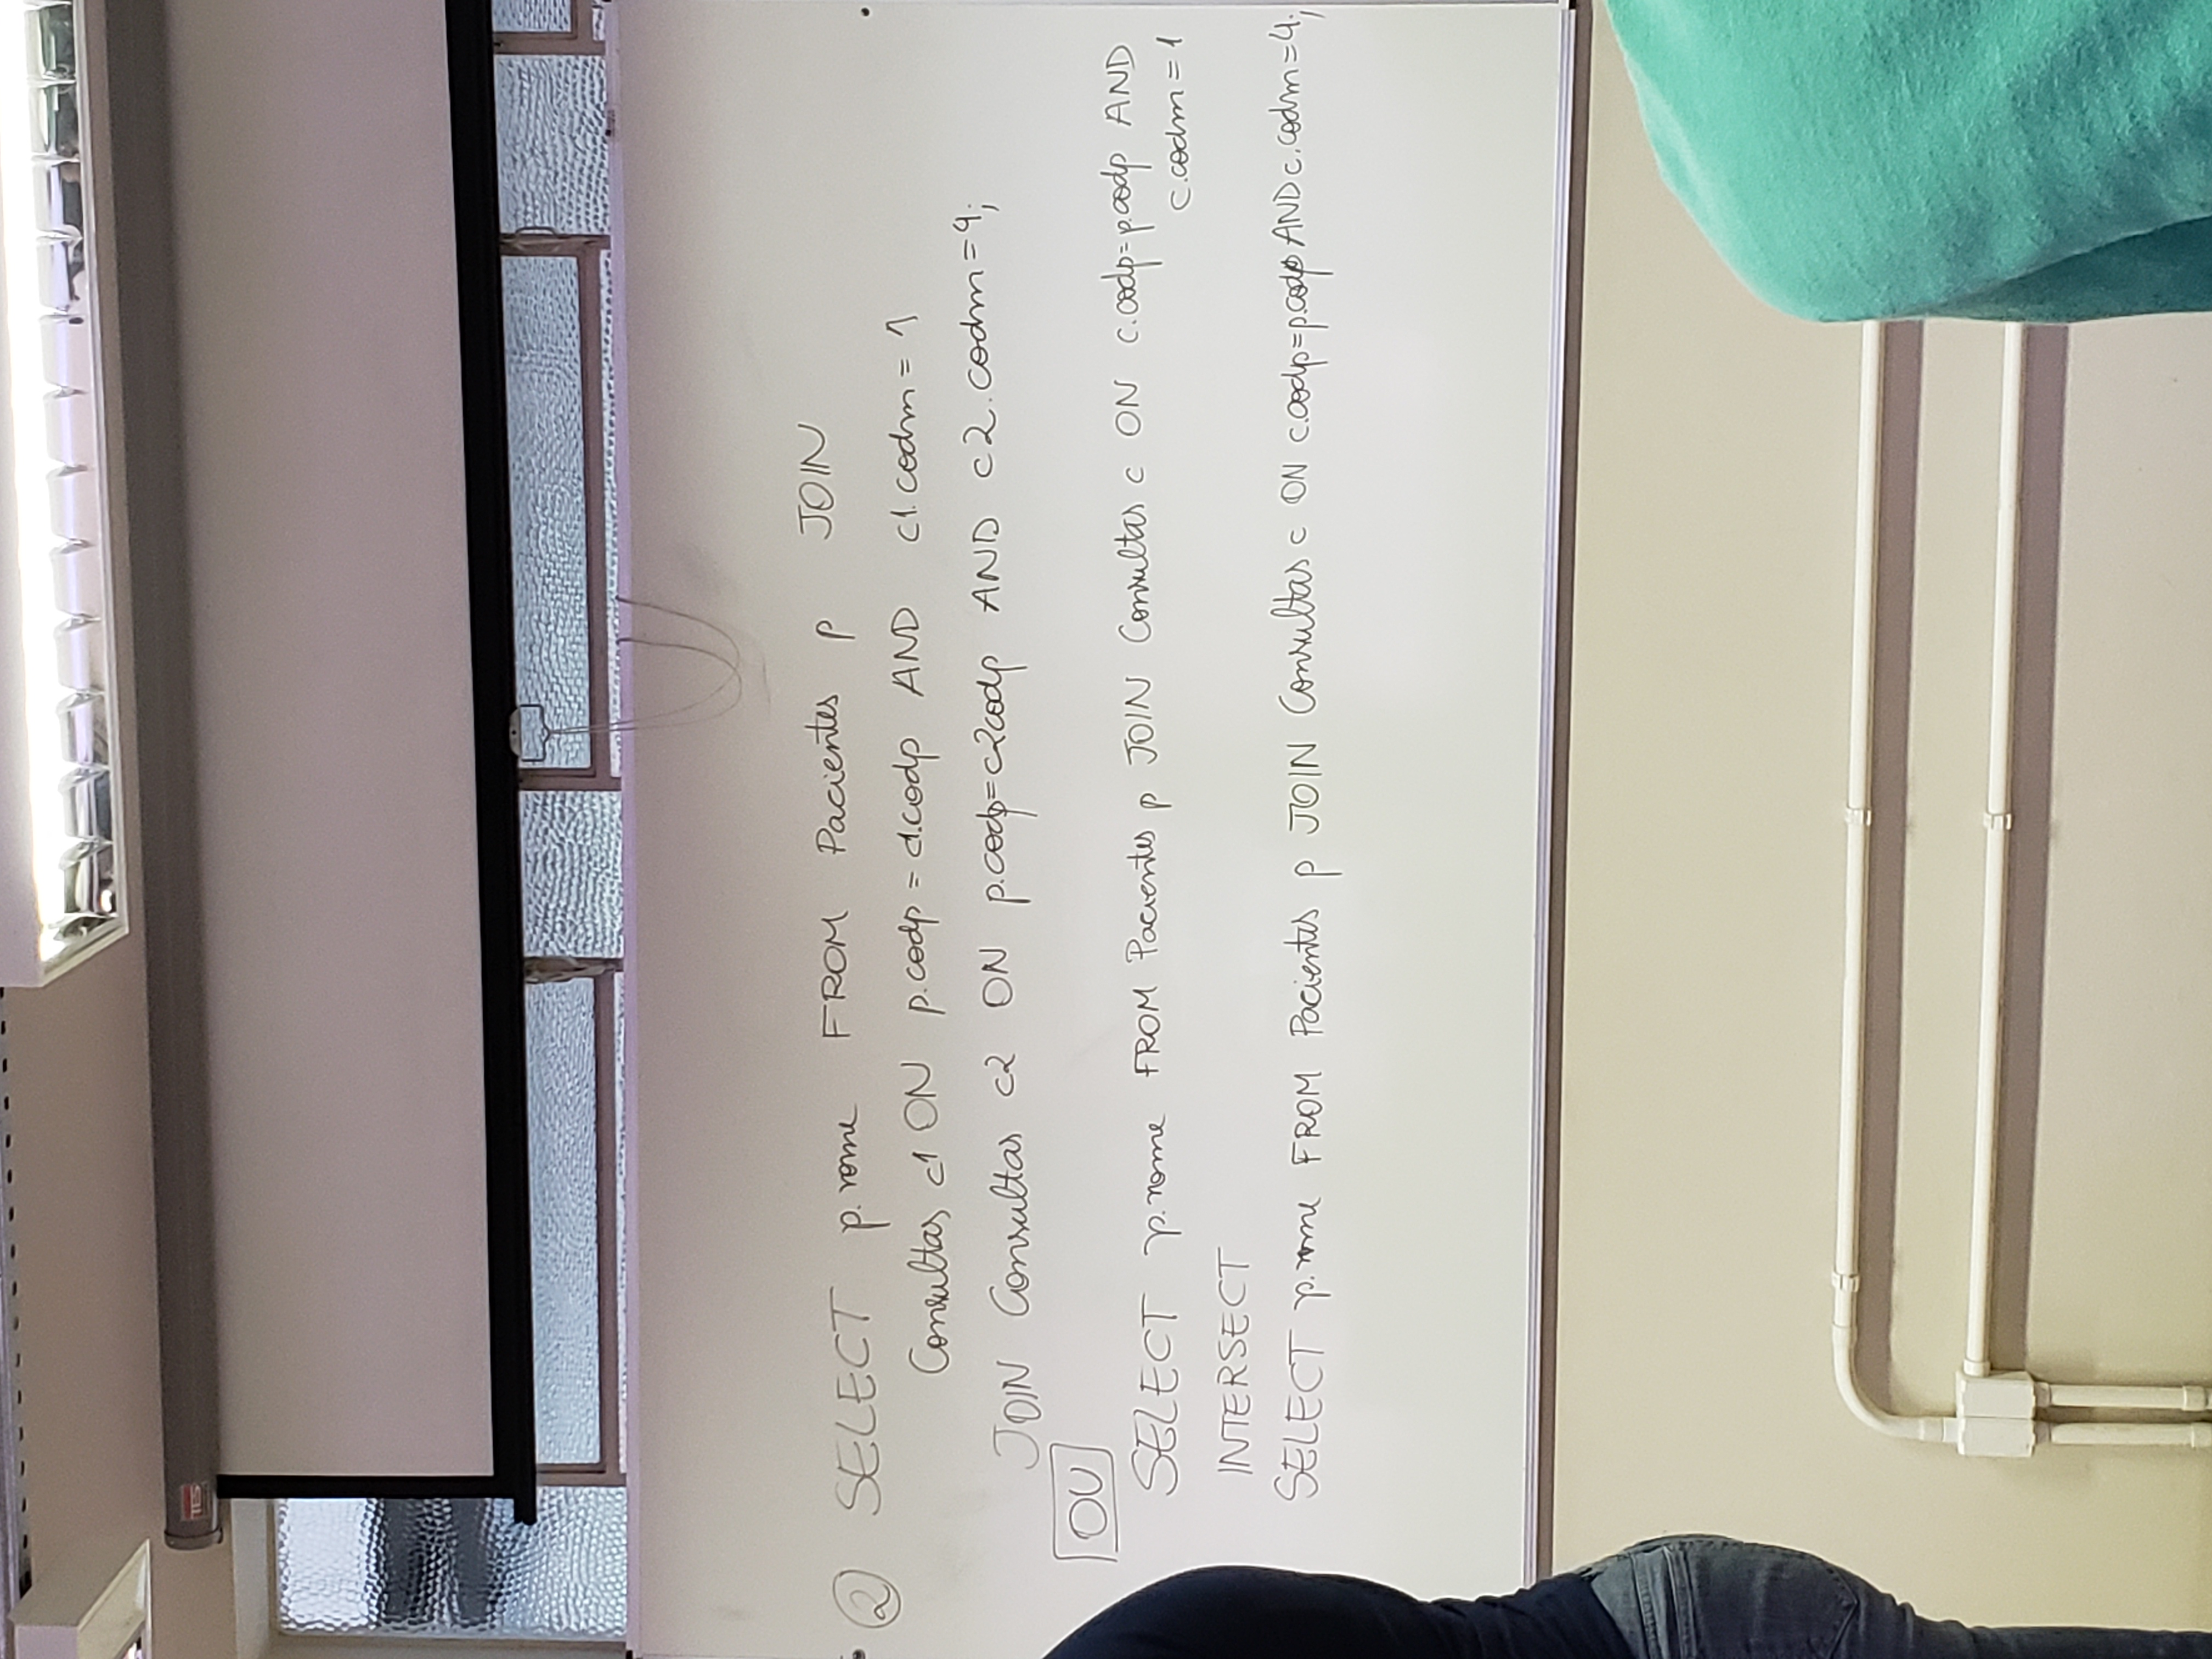 ② SELECT p.nome FROM Pacientes p JOIN
Consultas c1 ON p.codp = c1.codp AND c1.codm = 1
JOIN Consultas c2 ON p.codp=c2codp AND c2.codm=4;
OU
SELECT p.nome FROM Pacientes p JOIN Consultas c ON c.codp=p.codp AND
c.codm = 1
INTERSECT
SELECT p.nome FROM Pacientes p JOIN Consultas c ON c.codp=p.codp AND c.codm=4;